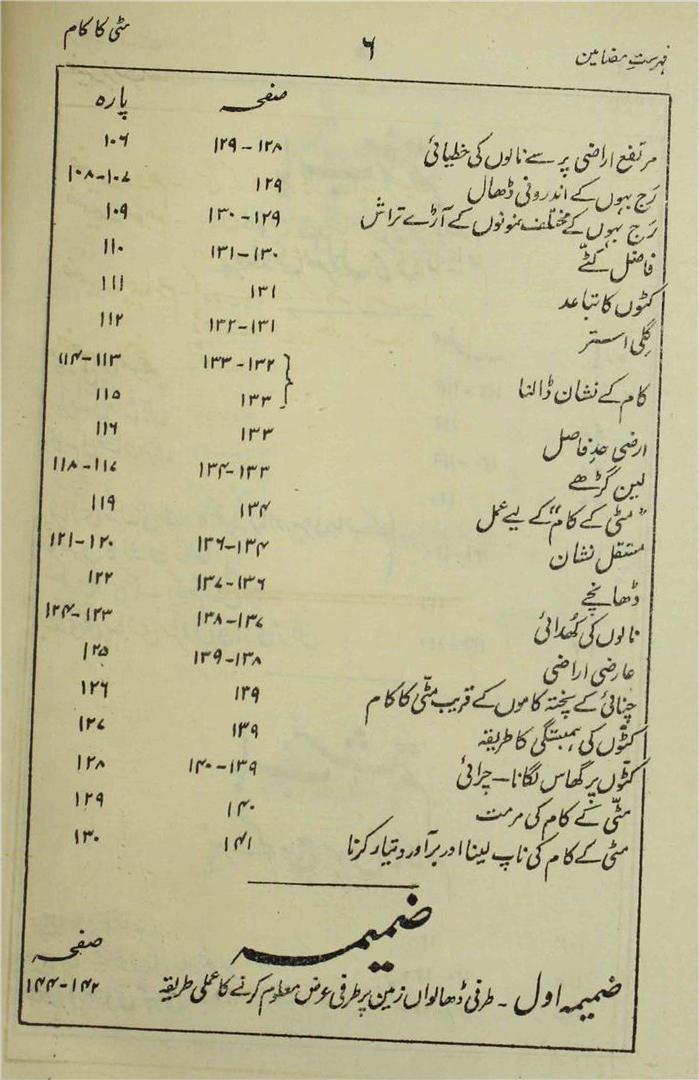 فہرستِ مضامین ۶ مٹی کا کام
صفحہ پارہ
مرتفع اراضی پر سے نالوں کی خطیائی ۱۲۸-۱۲۹ ۱۰۶
رَج بہوں کے اندرونی ڈھال ۱۲۹ ۱۰۷-۱۰۸
رَج بہوں کے مختلف نمونوں کے آڑے تراش ۱۲۹-۱۳۰ ۱۰۹
فاضل کٹّے ۱۳۰-۱۳۱ ۱۱۰
کٹوں کا تباعد ۱۳۱ ۱۱۱
گِلی استر ۱۳۱-۱۳۲ ۱۱۲
کام کے نشان ڈالنا { ۱۳۲-۱۳۳ ۱۱۳-۱۱۴
۱۳۳ ۱۱۵
ارضی حدِ فاصل ۱۳۳ ۱۱۶
لین گڑھے ۱۳۳-۱۳۴ ۱۱۷-۱۱۸
"مٹی کے کام" کے لیے عمل ۱۳۴ ۱۱۹
مستقل نشان ۱۳۴-۱۳۶ ۱۲۰-۱۲۱
ڈھانچے ۱۳۶-۱۳۷ ۱۲۲
نالوں کی کُھدائی ۱۳۷-۱۳۸ ۱۲۳-۱۲۴
عارضی اراضی ۱۳۸-۱۳۹ ۱۲۵
چنائی کے پختہ کاموں کے قریب مٹّی کا کام ۱۳۹ ۱۲۶
کٹّوں کی ہمبستگی کا طریقہ ۱۳۹ ۱۲۷
کٹّوں پر گھاس لگانا - چرائی ۱۳۹-۱۴۰ ۱۲۸
مٹّی کے کام کی مرمت ۱۴۰ ۱۲۹
مٹی کے کام کی ناپ لینا اور برآورد تیار کرنا ۱۴۱ ۱۳۰
ضمیمہ
صفحہ
ضمیمہ اول - طرفی ڈھالواں زمین پر طرفی عرض معلوم کرنے کا عملی طریقہ ۱۴۲-۱۴۴